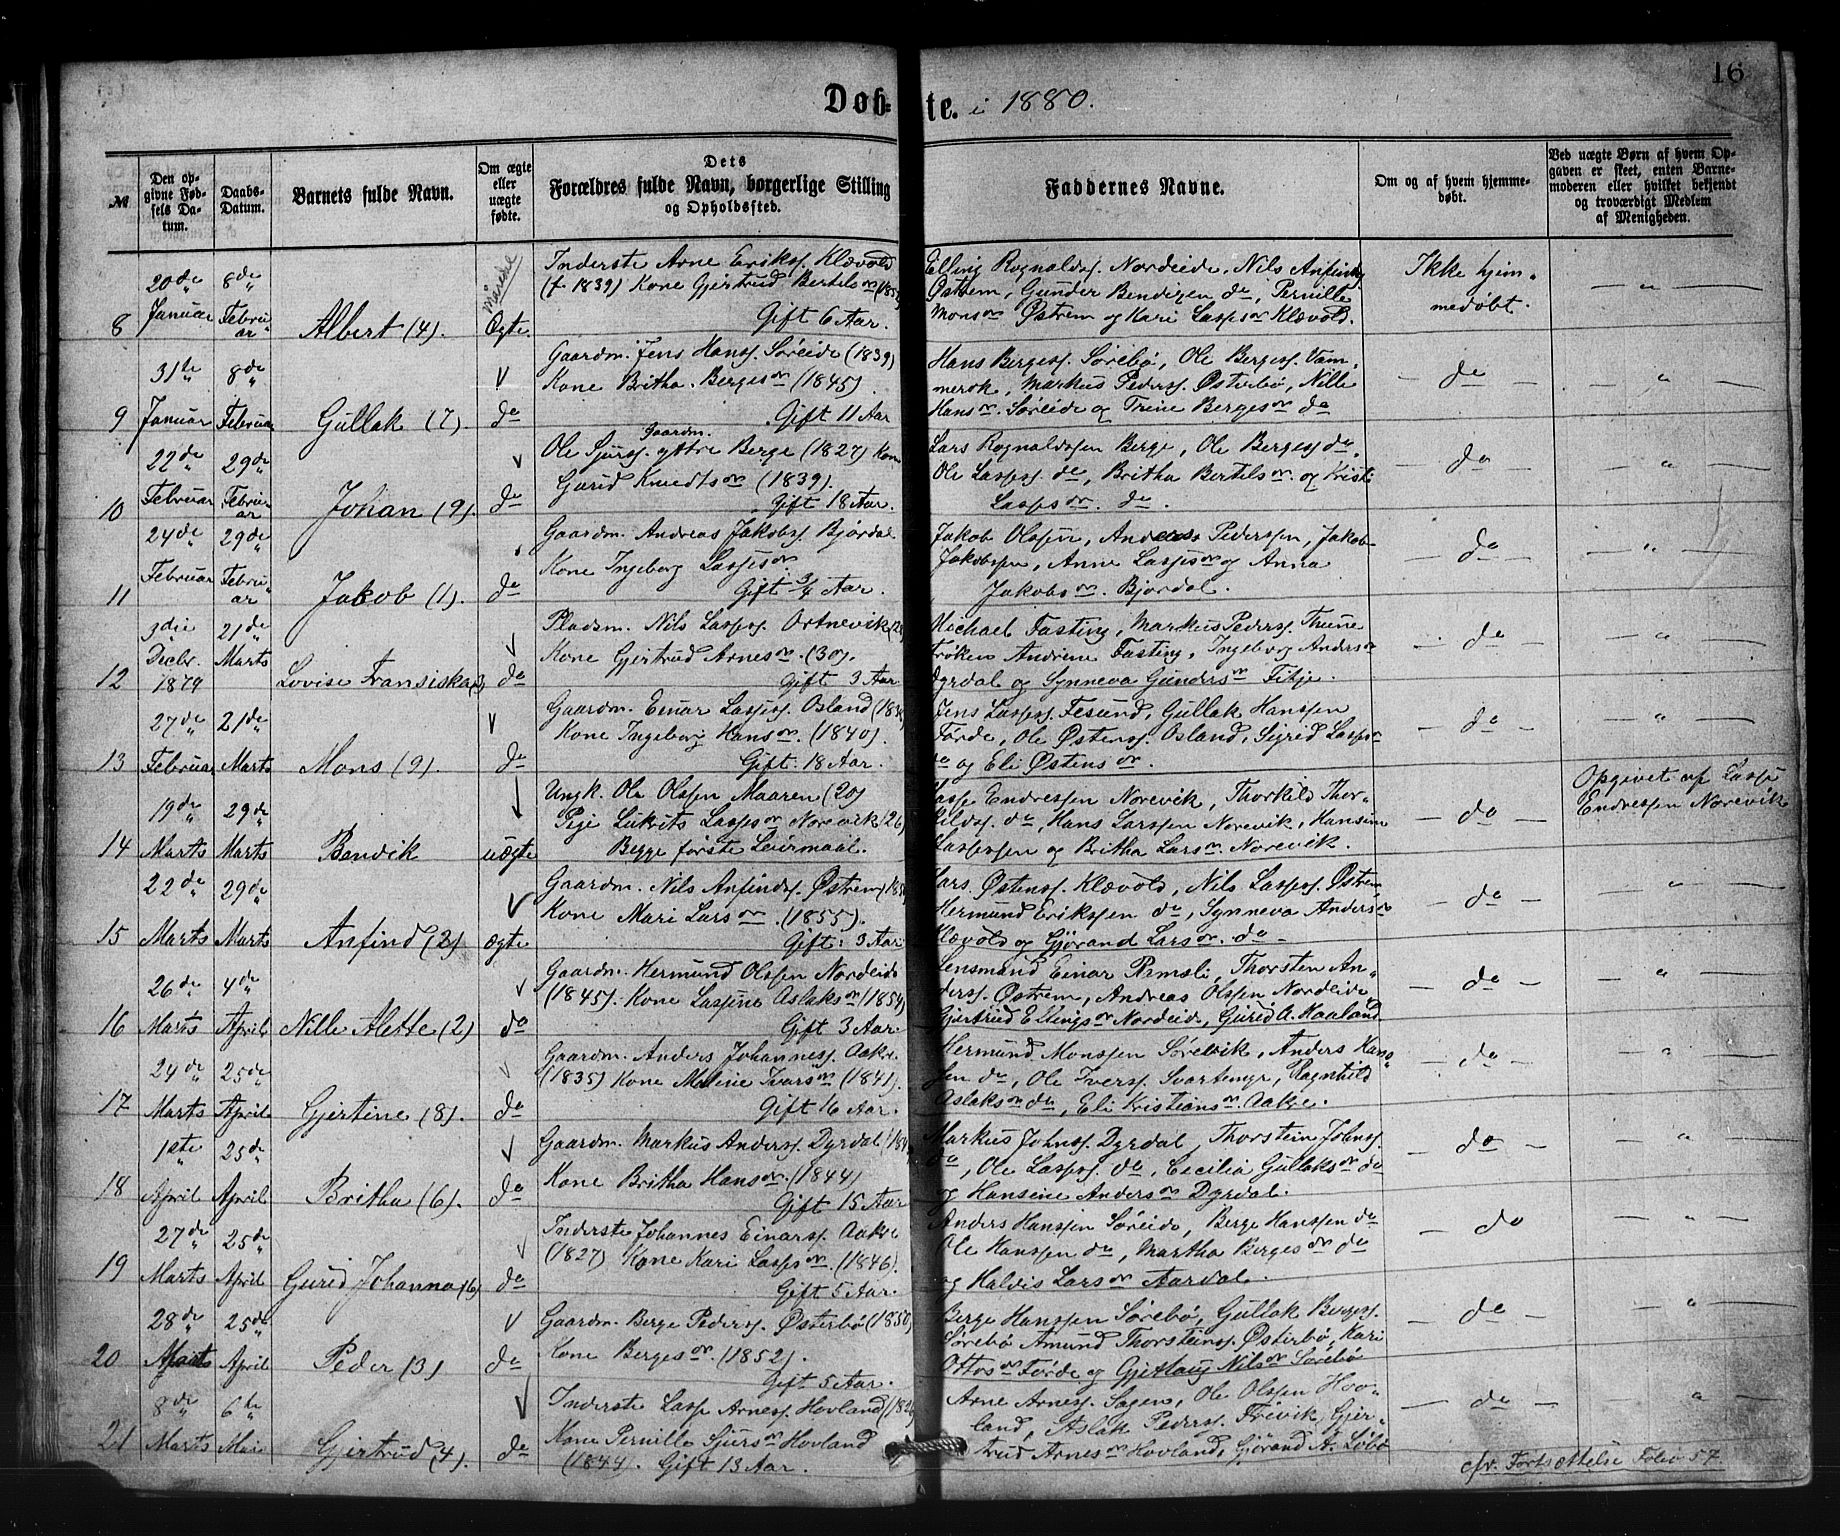 16
Døb-te. i 1880.
№
Den opgivne Fødsels Datum.
Daabs-Datum.
Barnets fulde Navn.
Om ægte eller uægte fødte.
Dets Forældres fulde Navn, borgerlige Stilling og Opholdssted.
Faddernes Navne.
Om og af hvem hjemmedøbt.
Ved uægte Børn af hvem Opgaven er skeet, enten Barnemoderen eller hvilket bekjendt og troværdigt Medlem af Menigheden.
8 20de Januar 8de Februar Albert (4). Ægte.
Inderste Arne Erikss. Klævold
(f 1839) Kone Gjertrud Bertilsdr
Gift 6 Aar.
Elling Rognaldss. Nordeide, Nils Anfinds.
Østrem, Gunder Bendixen do, Pernille
Monsdr Østrem og Kari Lassesdr Klævold.
Ikke hjemmedøbt.
9 31te Januar 8de Februar Gullak (7). do
Gaardm. Jens Hanss. Søreide (1839)
Kone Britha Bergesdr (1845).
Gift 11 Aar
Hans Bergess. Sørebø, Ole Bergess. Vammerok, Markus Pederss. Østerbø, Nille
Hansdr. Søreide og Trine Bergesdr do
do
10 22de Februar 29de Februar Johan (9). do
Gaardm.
Ole Sjurss. yttre Berge (1827) Kone
Gurid Knudtsdr (1839).
Gift 18 Aar.
Lars Rognaldssen Berge, Ole Bergess do,
Ole Lassess. do, Britha Bertilsdr. og Kristi
Lassesdr. do.
do
11 24de Februar 29de Februar Jakob (1). do
Gaardm. Andreas Jakobss. Bjørdal
Kone Ingeborg Lassesdr
Gift 3/4 Aar.
Jakob Olssen, Anders Pederssen, Jakob
Jakobssen, Anne Lassesdr og Anna
Jakobsdr. Bjørdal.
do
12 3die Decbr. 1879 21de Marts Lovise Fransiska do
Pladsm. Nils Lassess. Ortnevik
Kone Gjertrud Arnesdr. (30).
Gift 3 Aar
Michael Fasting, Markus Pederss. Thune
Frøken Andrine Fasting, Ingeborg Andersdr
Dyrdal og Synneva Gundersdr Fitje.
do
13 27de Februar 21de Marts Mons (9). do
Gaardm. Einar Lassess. Osland
Kone Ingeborg Hansdr. (1840).
Gift 18 Aar.
Jens Lassess. Fesund, Gullak Hanssen
Førde, Ole Østenss. Osland, Sigrid Lassesdr
do og Eli Østensdr.
do
14 19de Marts 29de Marts Bendik uægte
Ungk. Ole Olssen Maaren (20)
Pige Lukrits Lassesdr Norevik (26)
Begge første Leiermaal.
Lasse Endressen Norevik, Thorkild Thorkildss. do, Hans Larssen Norevik, Hansine
Lassessen og Britha Larsdr. Norevik.
do
Opgivet af Lasse
Endressen Norevik
15 22de Marts 29de Marts Anfind (2) ægte
Gaardm. Nils Anfindss. Østrem
Kone Mari Larsdr. (1855).
Gift: 3 Aar
Lars Østenss. Klævold, Nils Lassess. Østrem
Hermund Erikssen do, Synneva Andersdr
Klævold og Gjørand Larsdr. do
do
16 26de Marts 4de April Nille Alette (2) do
Gaardm. Hermund Olssen Nordeide
(1845). Kone Lassine Aslaksdr (1854)
Gift 3 Aar.
Lensmand Einar Ramsli, Thorsten Anderss. Østrem, Andreas Olssen Nordeide,
Gjertrud Ellingsdr Nordeide, Gurid A. Maaland
do
17 24de Marts 25de April Gjertine (8). do
Gaardm. Anders Johanness. Aakre
(1835) Kone Malene Ivarsdr (1841).
Gift 16 Aar.
Hermund Monssen Sørevik, Anders Hanssen do, Ole Iverss. Svartemyr, Ragnhild
Aslaksdr do, Eli Kristiansdr. Aakre.
do
18 1ste April 25de April Britha (6). do
Gaardm. Markus Anderss. Dyrdal
Kone Britha Hansdr. (1844)
Gift 15 Aar
Markus Johnss. Dyrdal, Thorstein Johnss.
do, Ole Lassess. do, Cecilia Gullaksdr do
og Hansine Andersdr Dyrdal.
do
19 27de Marts 25de April Gurid Johanna (6) do
Inderste Johannes Einarss. Aakre
(1827) Kone Kari Lassesdr. (1846).
Gift 5 Aar.
Anders Hanssen Søreide, Berge Hanssen do
Ole Hanssen do, Martha Bergesdr do
og Haldis Larsdr Aardal.
do
20 28de Marts 25de April Peder (3) do
Gaardm. Berge Pederss. Østerbø (1850)
Kone Bergesdr. (1852).
Gift 5 Aar.
Berge Hanssen Sørebø, Gullak Bergess.
Sørebø Amund Thorsteinss. Østerbø, Kari
Ottosdr Førde og Gjetlaug Nilsdr Sørebø
do
21 8de Marts 6te Mai Gjertrud (4). do
Inderste Lasse Arness. Hovland
Kone Pernille Sjursdr Hovland
(1844). Gift 13 Aar.
Arne Arness. Sagen, Ole Olssen Hovland, Aslak Pederss. Frivik, Gjertrud Arnesdr Hovland, Gjørand A. Løbø
do
cfr. Fortsættelse Folio 57.